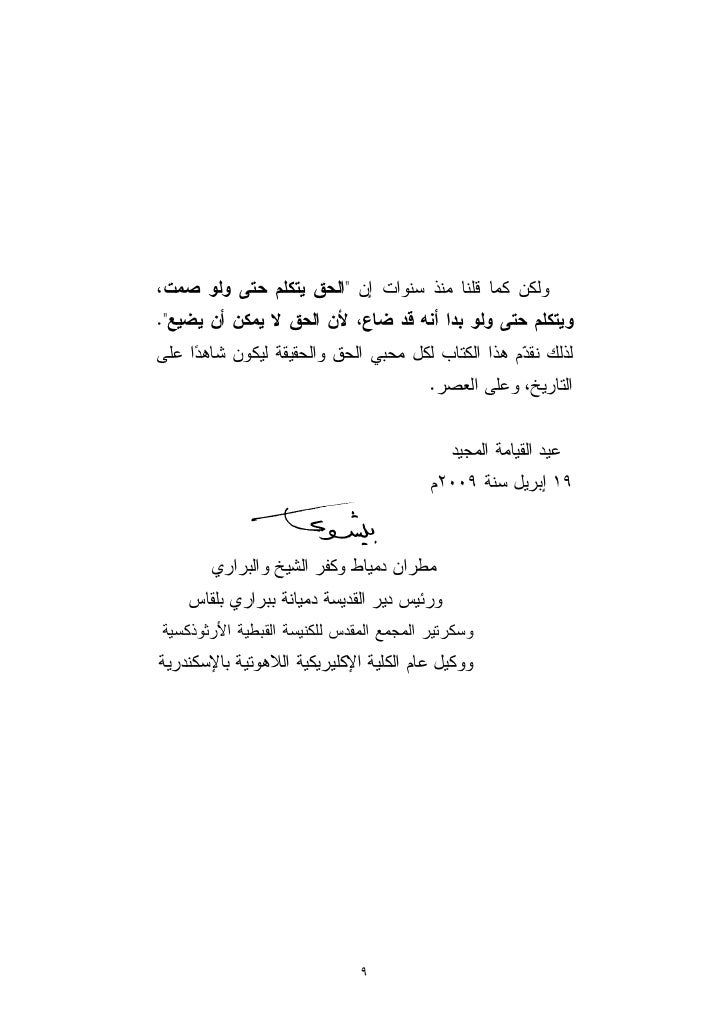 ولكن كما قلنا منذ سنوات إن "الحق يتكلم حتى ولو صمت،
ويتكلم حتى ولو بدا أنه قد ضاع، لأن الحق لا يمكن أن يضيع".
لذلك نقدّم هذا الكتاب لكل محبي الحق والحقيقة ليكون شاهدًا على
التاريخ، وعلى العصر.
عيد القيامة المجيد
١٩ إبريل سنة ٢٠٠٩م
بيشوى
مطران دمياط وكفر الشيخ والبراري
ورئيس دير القديسة دميانة ببراري بلقاس
وسكرتير المجمع المقدس للكنيسة القبطية الأرثوذكسية
ووكيل عام الكلية الإكليريكية اللاهوتية بالإسكندرية
٩